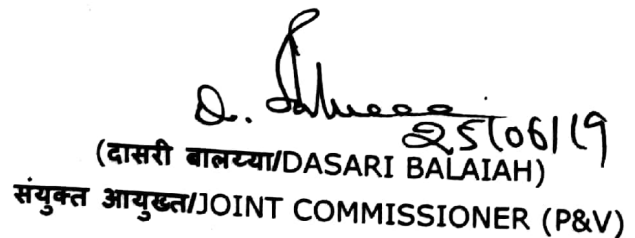 D.
25/06/19
(दासरी बालय्या/DASARI BALAIAH)
संयुक्त आयुख्त/JOINT COMMISSIONER (P&V)